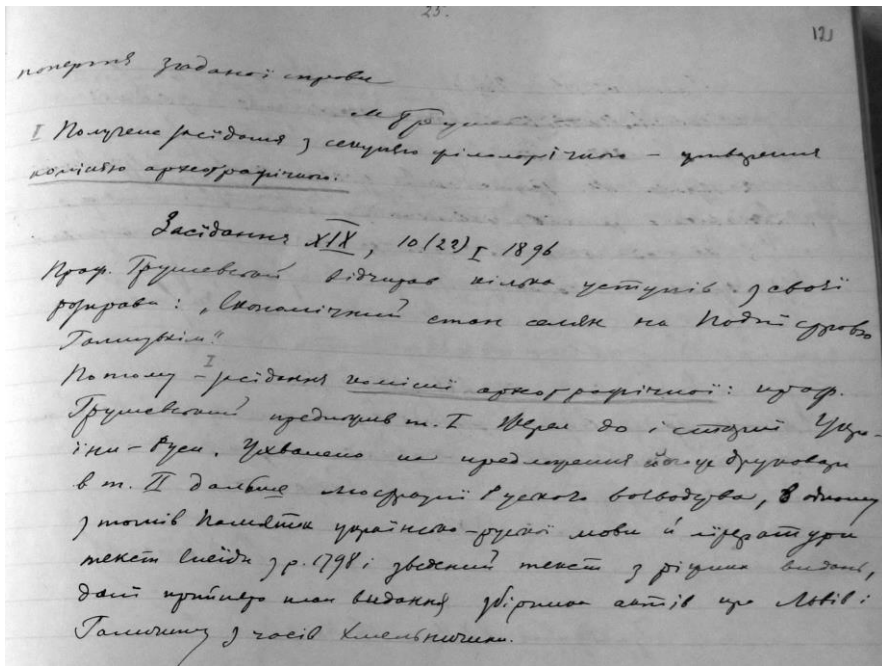 23.
121
поперття згаданої справи
М Грушевський
I Получене засідання з секциєю фільольоґічною – утворення
комісію археоґрафічною.
Засідання XIX, 10 (22) I. 1896
Проф. Грушевский відчитав кілька уступів з своєї
розправи: „Економічний стан селян на Поднїстровю
Галицькім."
Потому – I засїдання комісиї археоґрафічної: проф.
Грушевський предложив т. I Жерел до істориї Укра-
їни – Руси. Ухвалено на предложення його друковати
в т. II дальше люстрациї Руского воєводства, в одному
з томів Памяток українсько-руської мови й лїтератури
текст Енеїди з р. 1798 і зведений текст з ріжних видань,
далї прийнято план видання збірника актів про Львів і
Галичину з часів Хмельничини.